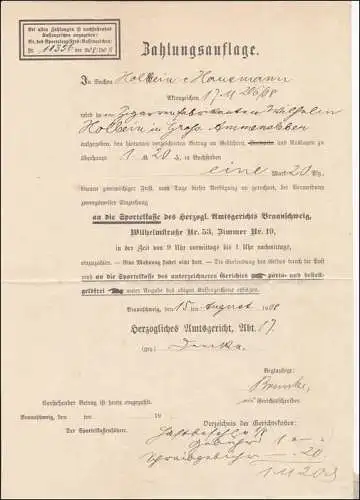 Bei allen Zahlungen ist nachstehendes
Kassenzeichen anzugeben:
Nr. des Sportelkassen-Kontobuches:
Nr. 11350
Zahlungsauflage.
In Sachen Holbein : Hausmann
Aktenzeichen 17. 11 206/08
wird dem Zigarrenfabrikanten Wilhelm
Holbein in Groß Ammensleben
aufgegeben, den verzeichneten Betrag an Gebühren und Auslagen zu
überhaupt 1 M 20 ₰, in Buchstaben
eine Mark 20 Pfg.
binnen zweiwöchiger Frist, vom Tage dieser Verfügung an gerechnet, bei Vermeidung
zwangsweiser Einziehung
an die Sportelkasse des Herzogl. Amtsgerichts Braunschweig,
Wilhelmstraße Nr. 53, Zimmer Nr. 19,
in der Zeit von 9 Uhr vormittags bis 1 Uhr nachmittags,
einzuzahlen. — Eine Mahnung findet nicht statt. — Die Einsendung des Geldes durch die Post
wird an die Sportelkasse des unterzeichneten Gerichts porto- und bestell-
geldfrei unter Angabe des obigen Kassenzeichens erfolgen.
Braunschweig, den 15 ten August 1908
Herzogliches Amtsgericht, Abt. 17.
(gez.)
Beglaubigt:
als Gerichtsschreiber.
Vorstehender Betrag ist heute eingezahlt.
Braunschweig, den ten 19
Der Sportelkassenführer.
Verzeichnis der Gerichtskosten:
Gebühr 1 M —
Schreibgebühr — 20
1 M 20 ₰